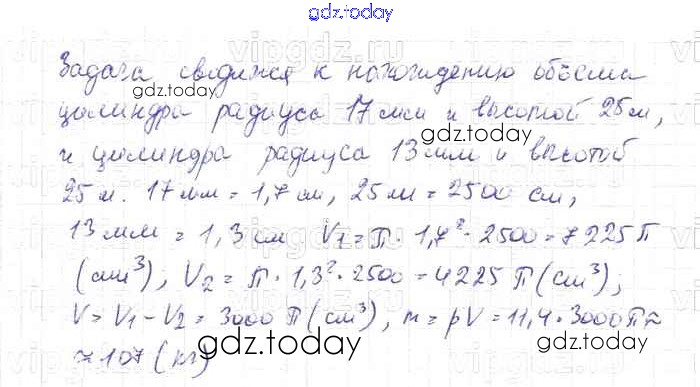 gdz.today
Задача сводится к нахождению объема
gdz.today
цилиндра радиуса 17 мм и высотой 25 м,
gdz.today
и цилиндра радиуса 13 мм и высотой
25 м. 17 мм = 1,7 см, 25 м = 2500 см,
13 мм = 1,3 см V₁ = π · 1,7² · 2500 = 7225 π
(см³); V₂ = π · 1,3² · 2500 = 4225 π (см³);
V = V₁ - V₂ = 3000 π (см³); m = ρV = 11,4 · 3000 π ≈
gdz.today
≈ 107 (кг)
gdz.today